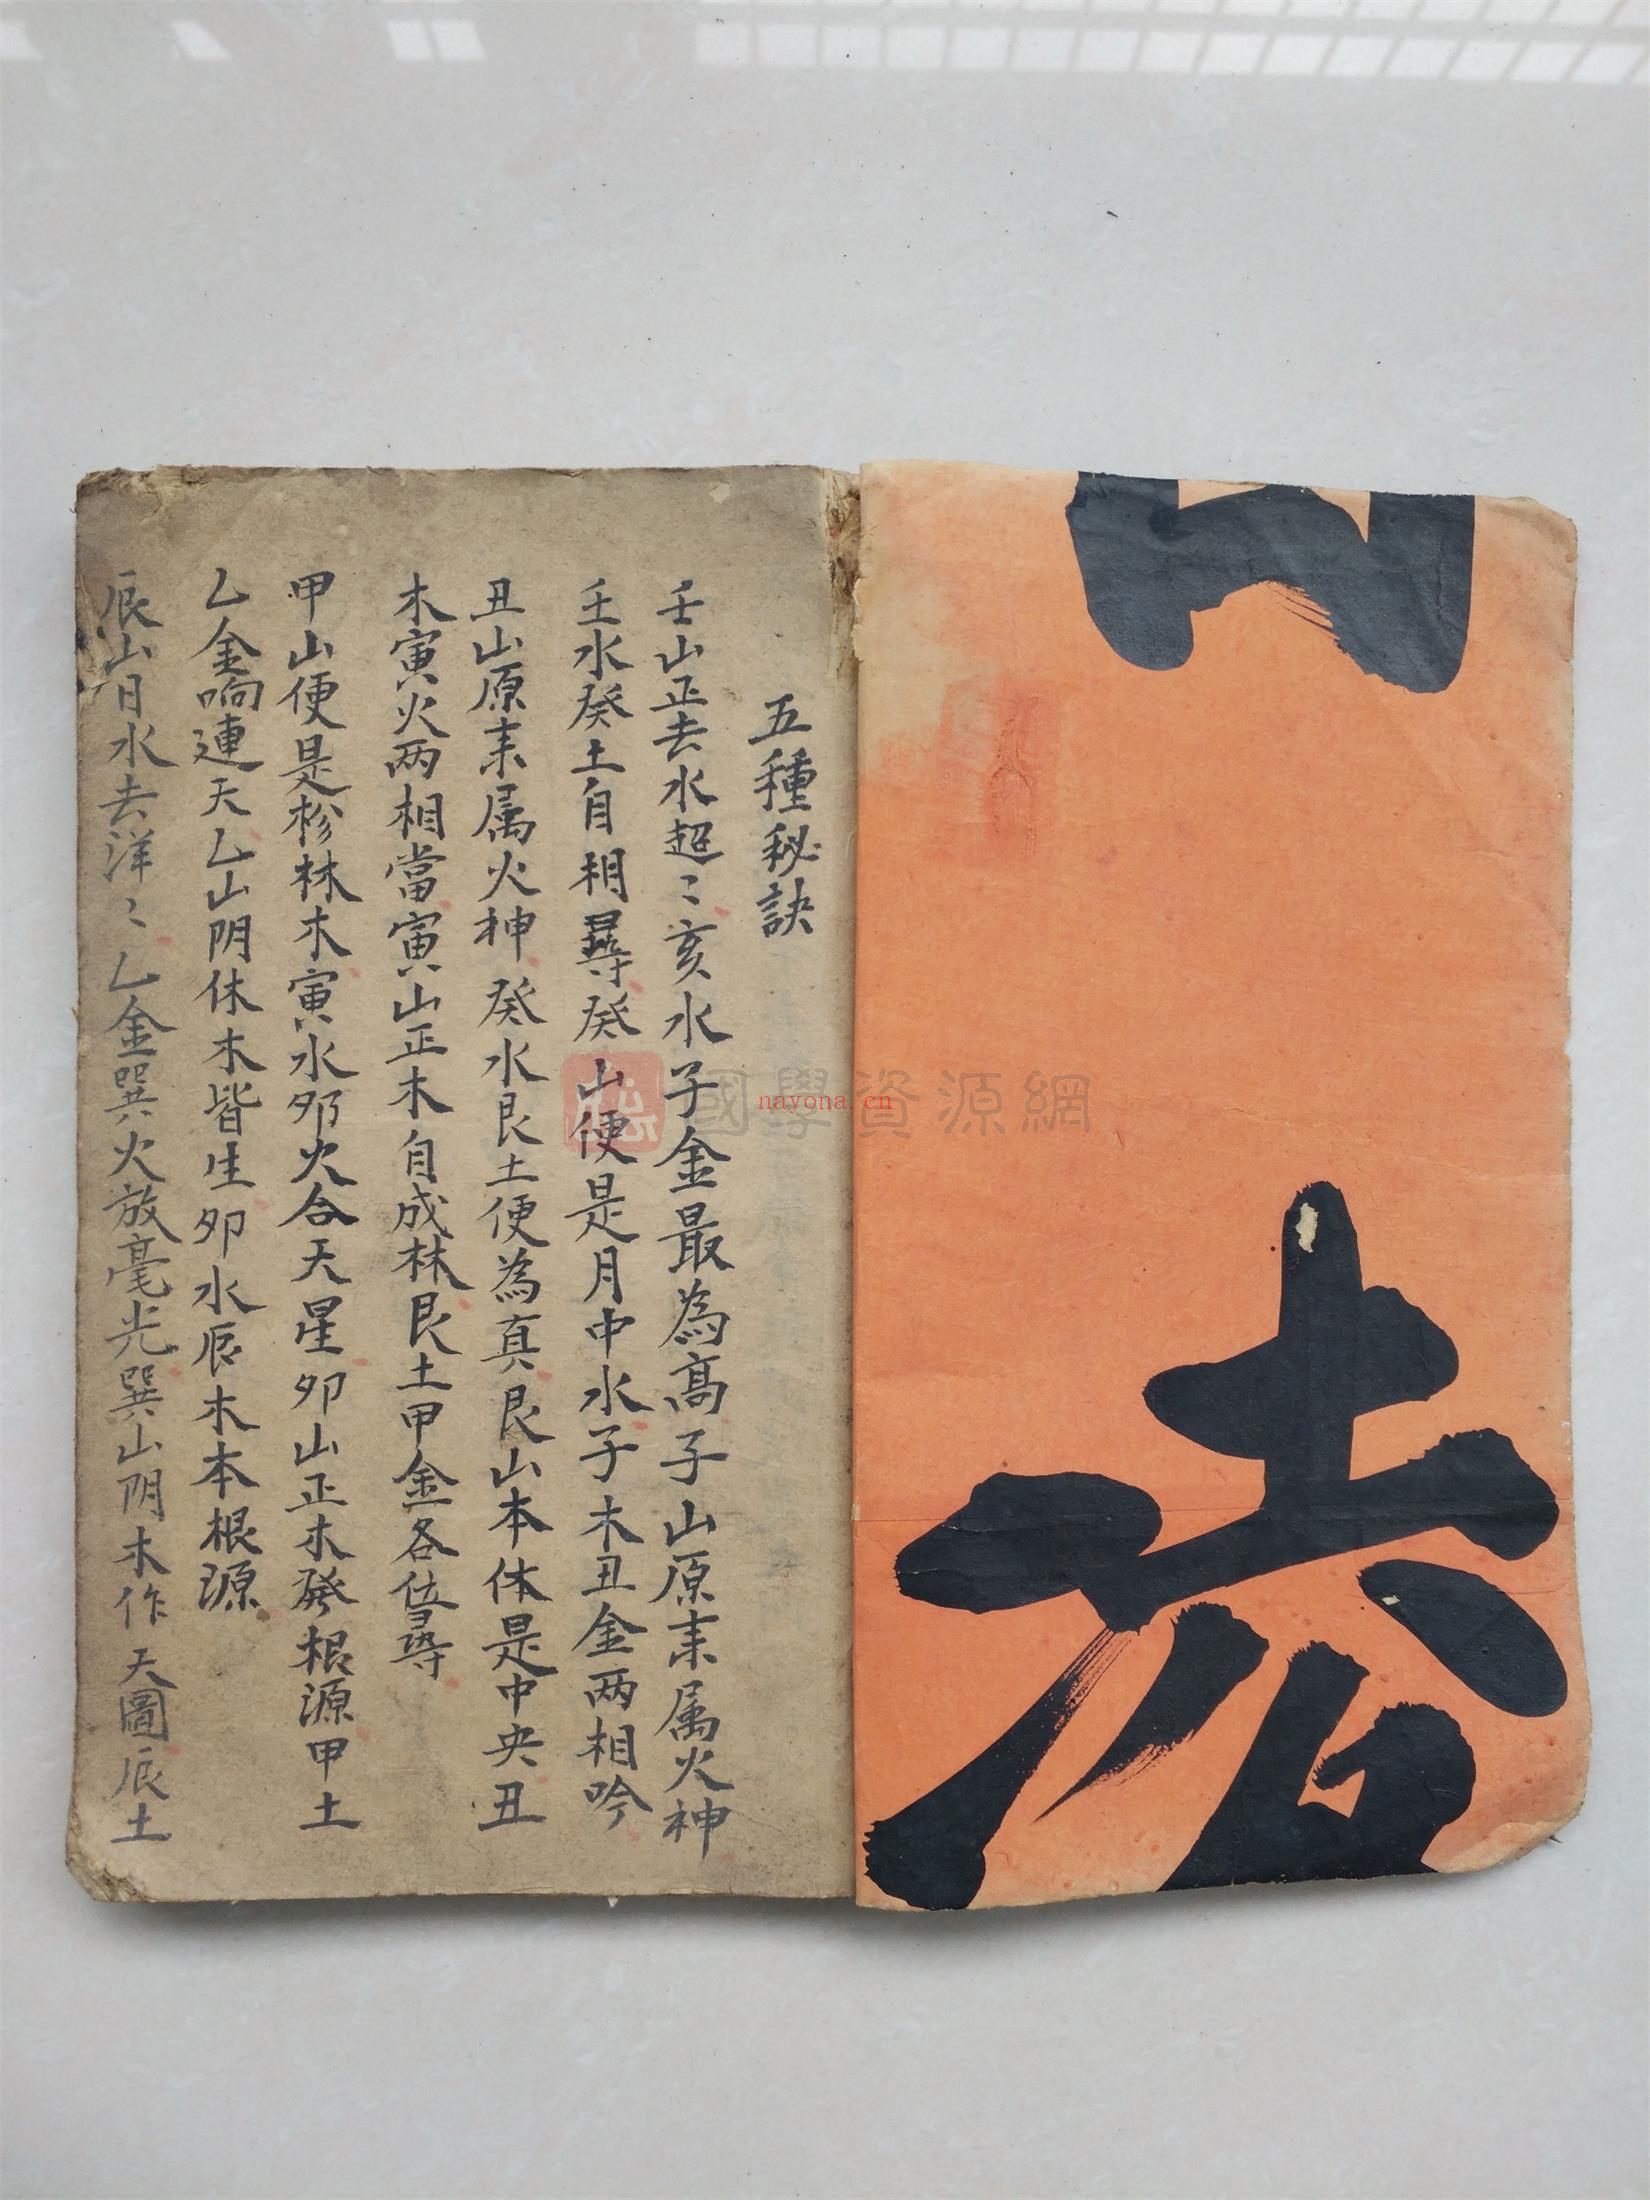 五種秘訣
壬山正去水超〻亥水子金最為高子山原来属火神
壬水癸土自相尋癸山便是月中水子木丑金两相吟
丑山原来属火神癸水艮土便為真艮山本体是中央丑
木寅火两相當寅山正木自成林艮土甲金各位尋
甲山便是杉林木寅水卯火合天星卯山正木發根源甲土
乙金响連天乙山阴休木皆生卯水辰木本根源
辰山日水去洋〻乙金巽火放毫光巽山阴木作天圖辰土
國學資源網
nayona.cn